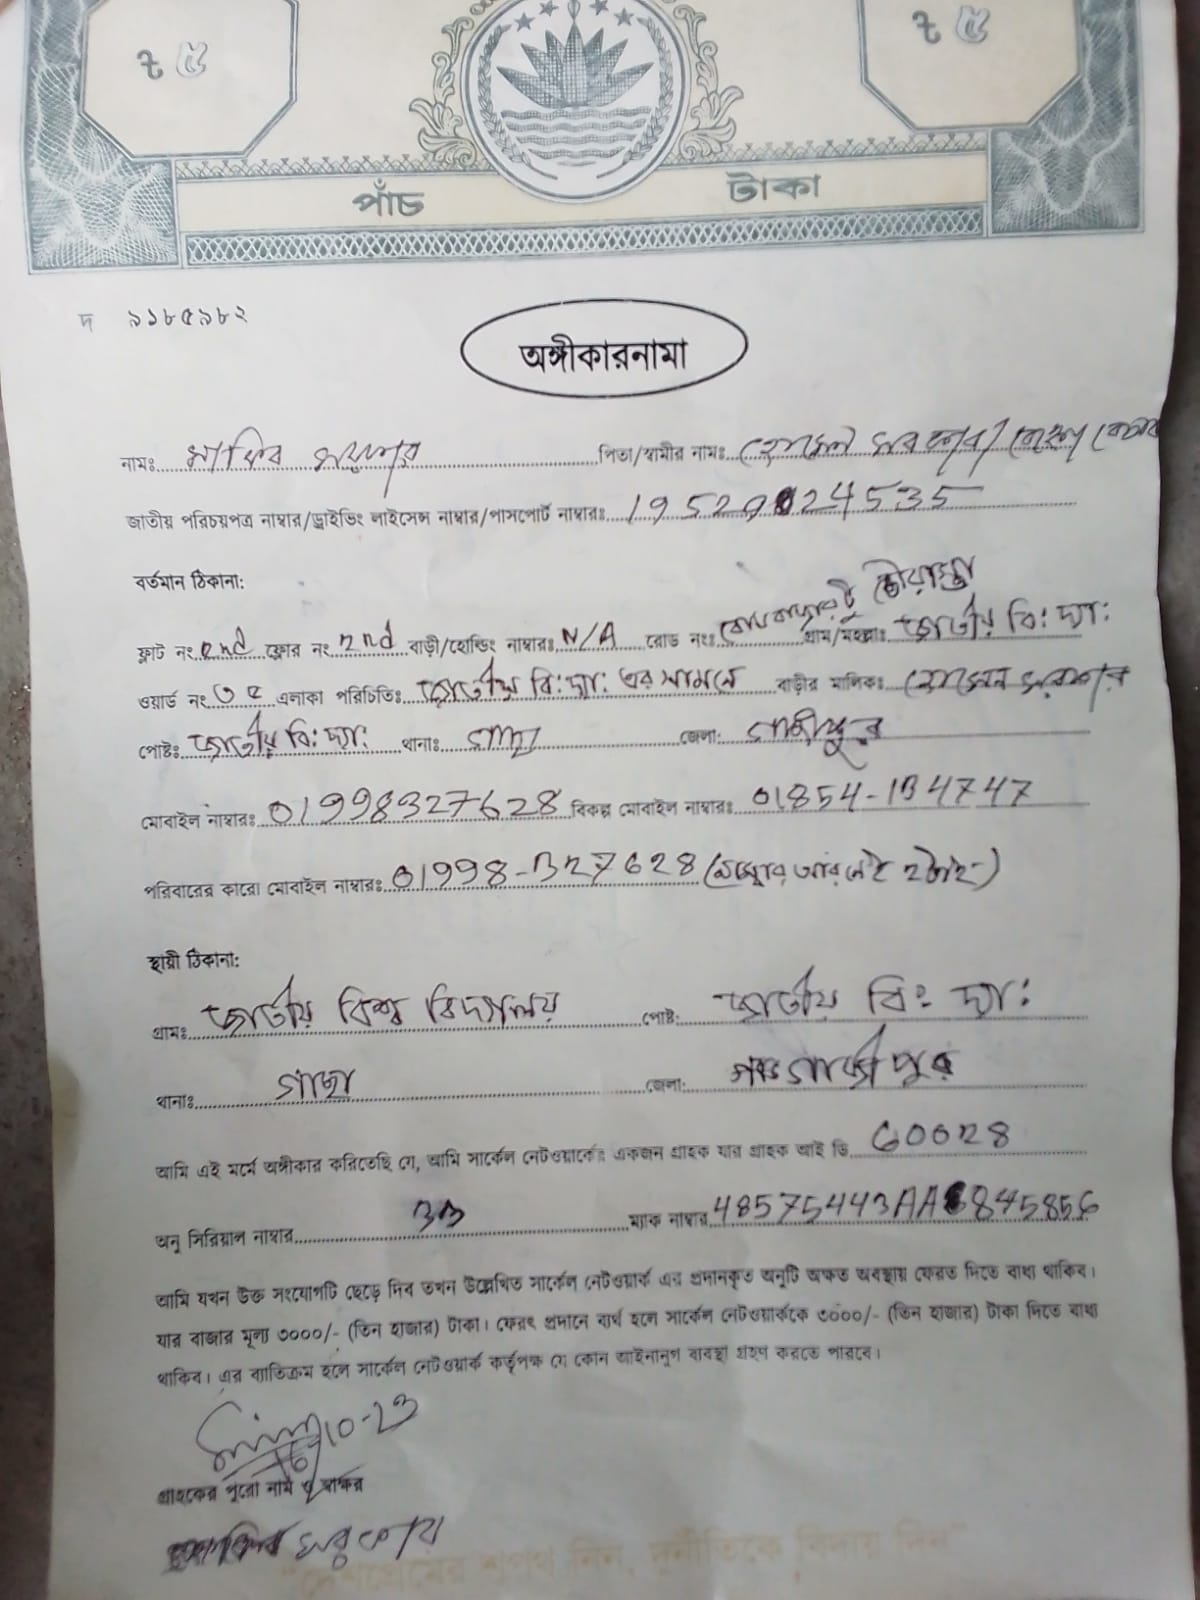 ৳ ৫ ৳ ৫
পাঁচ টাকা
দ ৯১৮৫৯৮২
অঙ্গীকারনামা
নামঃ সাকিব সরকার পিতা/স্বামীর নামঃ হোসেন সরকার/
জাতীয় পরিচয়পত্র নাম্বার/ড্রাইভিং লাইসেন্স নাম্বার/পাসপোর্ট নাম্বারঃ
বর্তমান ঠিকানা:
ফ্লাট নং 2nd ফ্লোর নং 2nd বাড়ী/হোল্ডিং নাম্বারঃ N/A রোড নংঃ বোর্ডবাজার টু চৌরাস্তা গ্রাম/মহল্লাঃ জাতীয় বি: দ্যা:
ওয়ার্ড নং ৩৫ এলাকা পরিচিতিঃ জাতীয় বি: দ্যা: এর সামনে বাড়ীর মালিকঃ হোসেন সরকার
পোষ্টঃ জাতীয় বি: দ্যা: থানাঃ গাছা জেলা: গাজীপুর
মোবাইল নাম্বারঃ 01998327628 বিকল্প মোবাইল নাম্বারঃ 01854-134747
পরিবারের কারো মোবাইল নাম্বারঃ 01998-327628 (নাম্বার আর নেই ২টাই)
স্থায়ী ঠিকানা:
গ্রামঃ জাতীয় বিশ্ব বিদ্যালয় পোষ্ট: জাতীয় বি: দ্যা:
থানাঃ গাছা জেলা: গাজীপুর
আমি এই মর্মে অঙ্গীকার করিতেছি যে, আমি সার্কেল নেটওয়ার্কের একজন গ্রাহক যার গ্রাহক আই ডি 60028
অনু সিরিয়াল নাম্বার 33 ম্যাক নাম্বার
আমি যখন উক্ত সংযোগটি ছেড়ে দিব তখন উল্লেখিত সার্কেল নেটওয়ার্ক এর প্রদানকৃত অনুটি অক্ষত অবস্থায় ফেরত দিতে বাধ্য থাকিব।
যার বাজার মূল্য ৩০০০/- (তিন হাজার) টাকা। ফেরৎ প্রদানে ব্যর্থ হলে সার্কেল নেটওয়ার্ককে ৩০০০/- (তিন হাজার) টাকা দিতে বাধ্য
থাকিব। এর ব্যতিক্রম হলে সার্কেল নেটওয়ার্ক কর্তৃপক্ষ যে কোন আইনানুগ ব্যবস্থা গ্রহণ করতে পারবে।
গ্রাহকের পুরো নাম ও স্বাক্ষর
সাকিব সরকার
"দেশপ্রেমের শপথ নিন, দুর্নীতিকে বিদায় দিন"